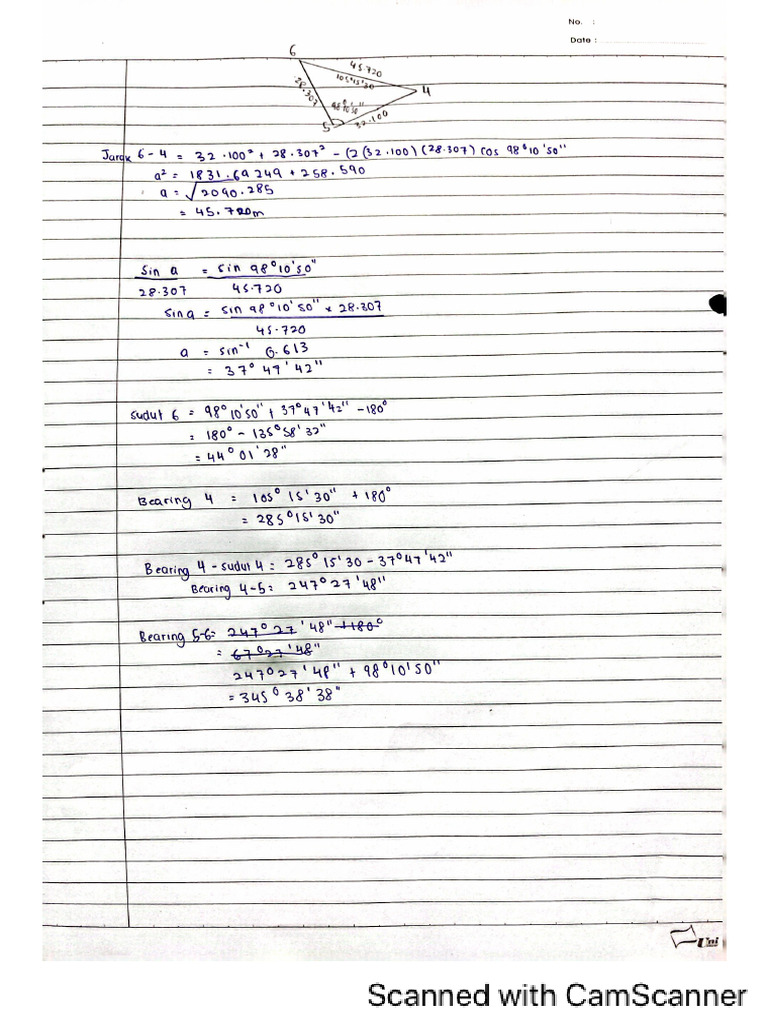 No. :
Date :
6
45.720
105°15'30
4
28.307
98°10'50"
5
32.100
Jarak 6-4 = 32.100² + 28.307² - (2(32.100)(28.307) cos 98°10'50"
a² = 1831.69249 + 258.590
a = √2090.285
= 45.720m
sin a = sin 98°10'50"
28.307 45.720
sin a = sin 98°10'50" x 28.307
45.720
a = sin⁻¹ 0.613
= 37° 47' 42"
sudut 6 = 98°10'50" + 37°47'42" - 180°
= 180° - 135°58'32"
= 44° 01' 28"
Bearing 4 = 105° 15' 30" + 180°
= 285°15'30"
Bearing 4 - sudut 4 = 285° 15' 30 - 37°47'42"
Bearing 4-5 = 247° 27' 48"
Bearing 5-6 = 247° 27' 48" +180°
= 67°27'48"
247°27'48" + 98°10'50"
= 345° 38' 38"
Uni
Scanned with CamScanner